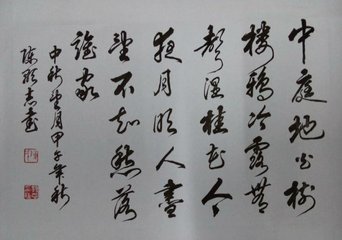 中庭地白樹
棲鴉冷露無
聲濕桂花今
夜月明人盡
望不知愁落
誰家
中秋望月甲子年秋
陳志書